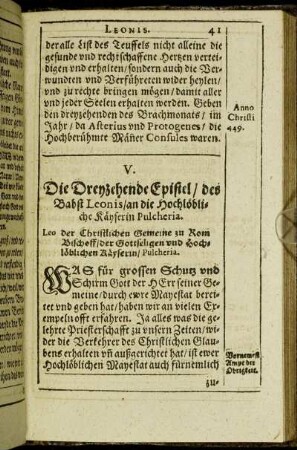 LEONIS. 41
der alle List des Teuffels nicht alleine die
gesunde vnd rechtschaffene Hertzen vertei-
digen vnd erhalten/sondern auch die Ver-
wundten vnd Verführeten wider heylen/
vnd zu rechte bringen mögen/damit aller
vnd jeder Seelen erhalten werden. Geben
den dreyzehenden des Brachmonats/im
Jahr/da Asterius vnd Protogenes/die
Hochberühmte Mäñer Consules waren.
Anno
Christi
449.
V.
Die Dreyzehende Epistel/des
Babst Leonis/an die Hochlöbli-
che Käyserin Pulcheria.
Leo der Christlichen Gemeine zu Rom
Bischoff/der Gottseligen vnd Hoch-
löblichen Käyserin/Pulcheria.
WAS für grossen Schutz vnd
Schirm Gott der HErr seiner Ge-
meine/durch ewre Mayestat berei-
tet vnd geben hat/haben wir an vielen Ex-
empeln offt erfahren. Ja alles was die ge-
lehrte Priesterschafft zu vnsern Zeiten/wi-
der die Verkehrer des Christlichen Glau-
bens erhalten vñ außgerichtet hat/ist ewer
Hochlöblichen Mayestat auch fürnemlich
zu-
Vornemste
Ampt der
Obrigkeit.